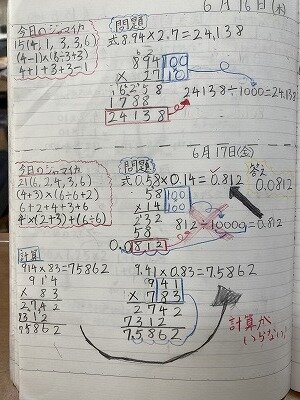 6月16日(木)
今日のジャマイカ
15(4, 1, 3, 3, 6)
(4-1)×(6-3÷3)
4+1+3+3-
問題
式8.94×2.7=24.138
894 100
× 27 10
6258
1788
24138
24138÷1000=24.138
6月17日(金)
今日のジャマイカ
21(6, 2, 4, 3, 6)
(4+3)×(6-6÷2)
6+2+4+3+6
4×(2+3)+(6÷6)
問題
式0.58×0.14=0.812
答え
0.0812
58 100
× 14 100
232
58
0.0812
812÷10000=0.0812
計算
914×83=75862
914
× 83
2742
7312
75862
9.41×0.83=7.5862
941
× 783
2742
7312
7.5862
計算が
いらない!